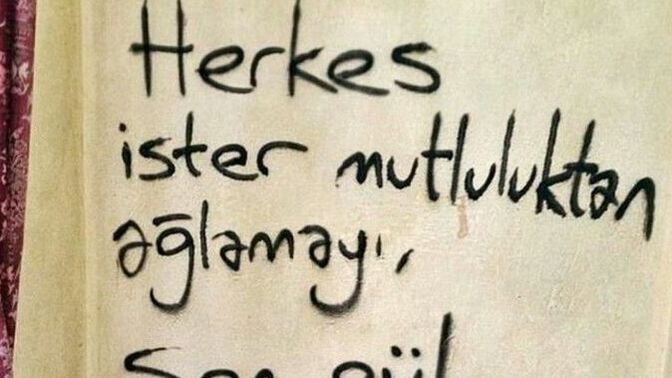 Herkes
ister mutluluktan
ağlamayı,
Sen gül